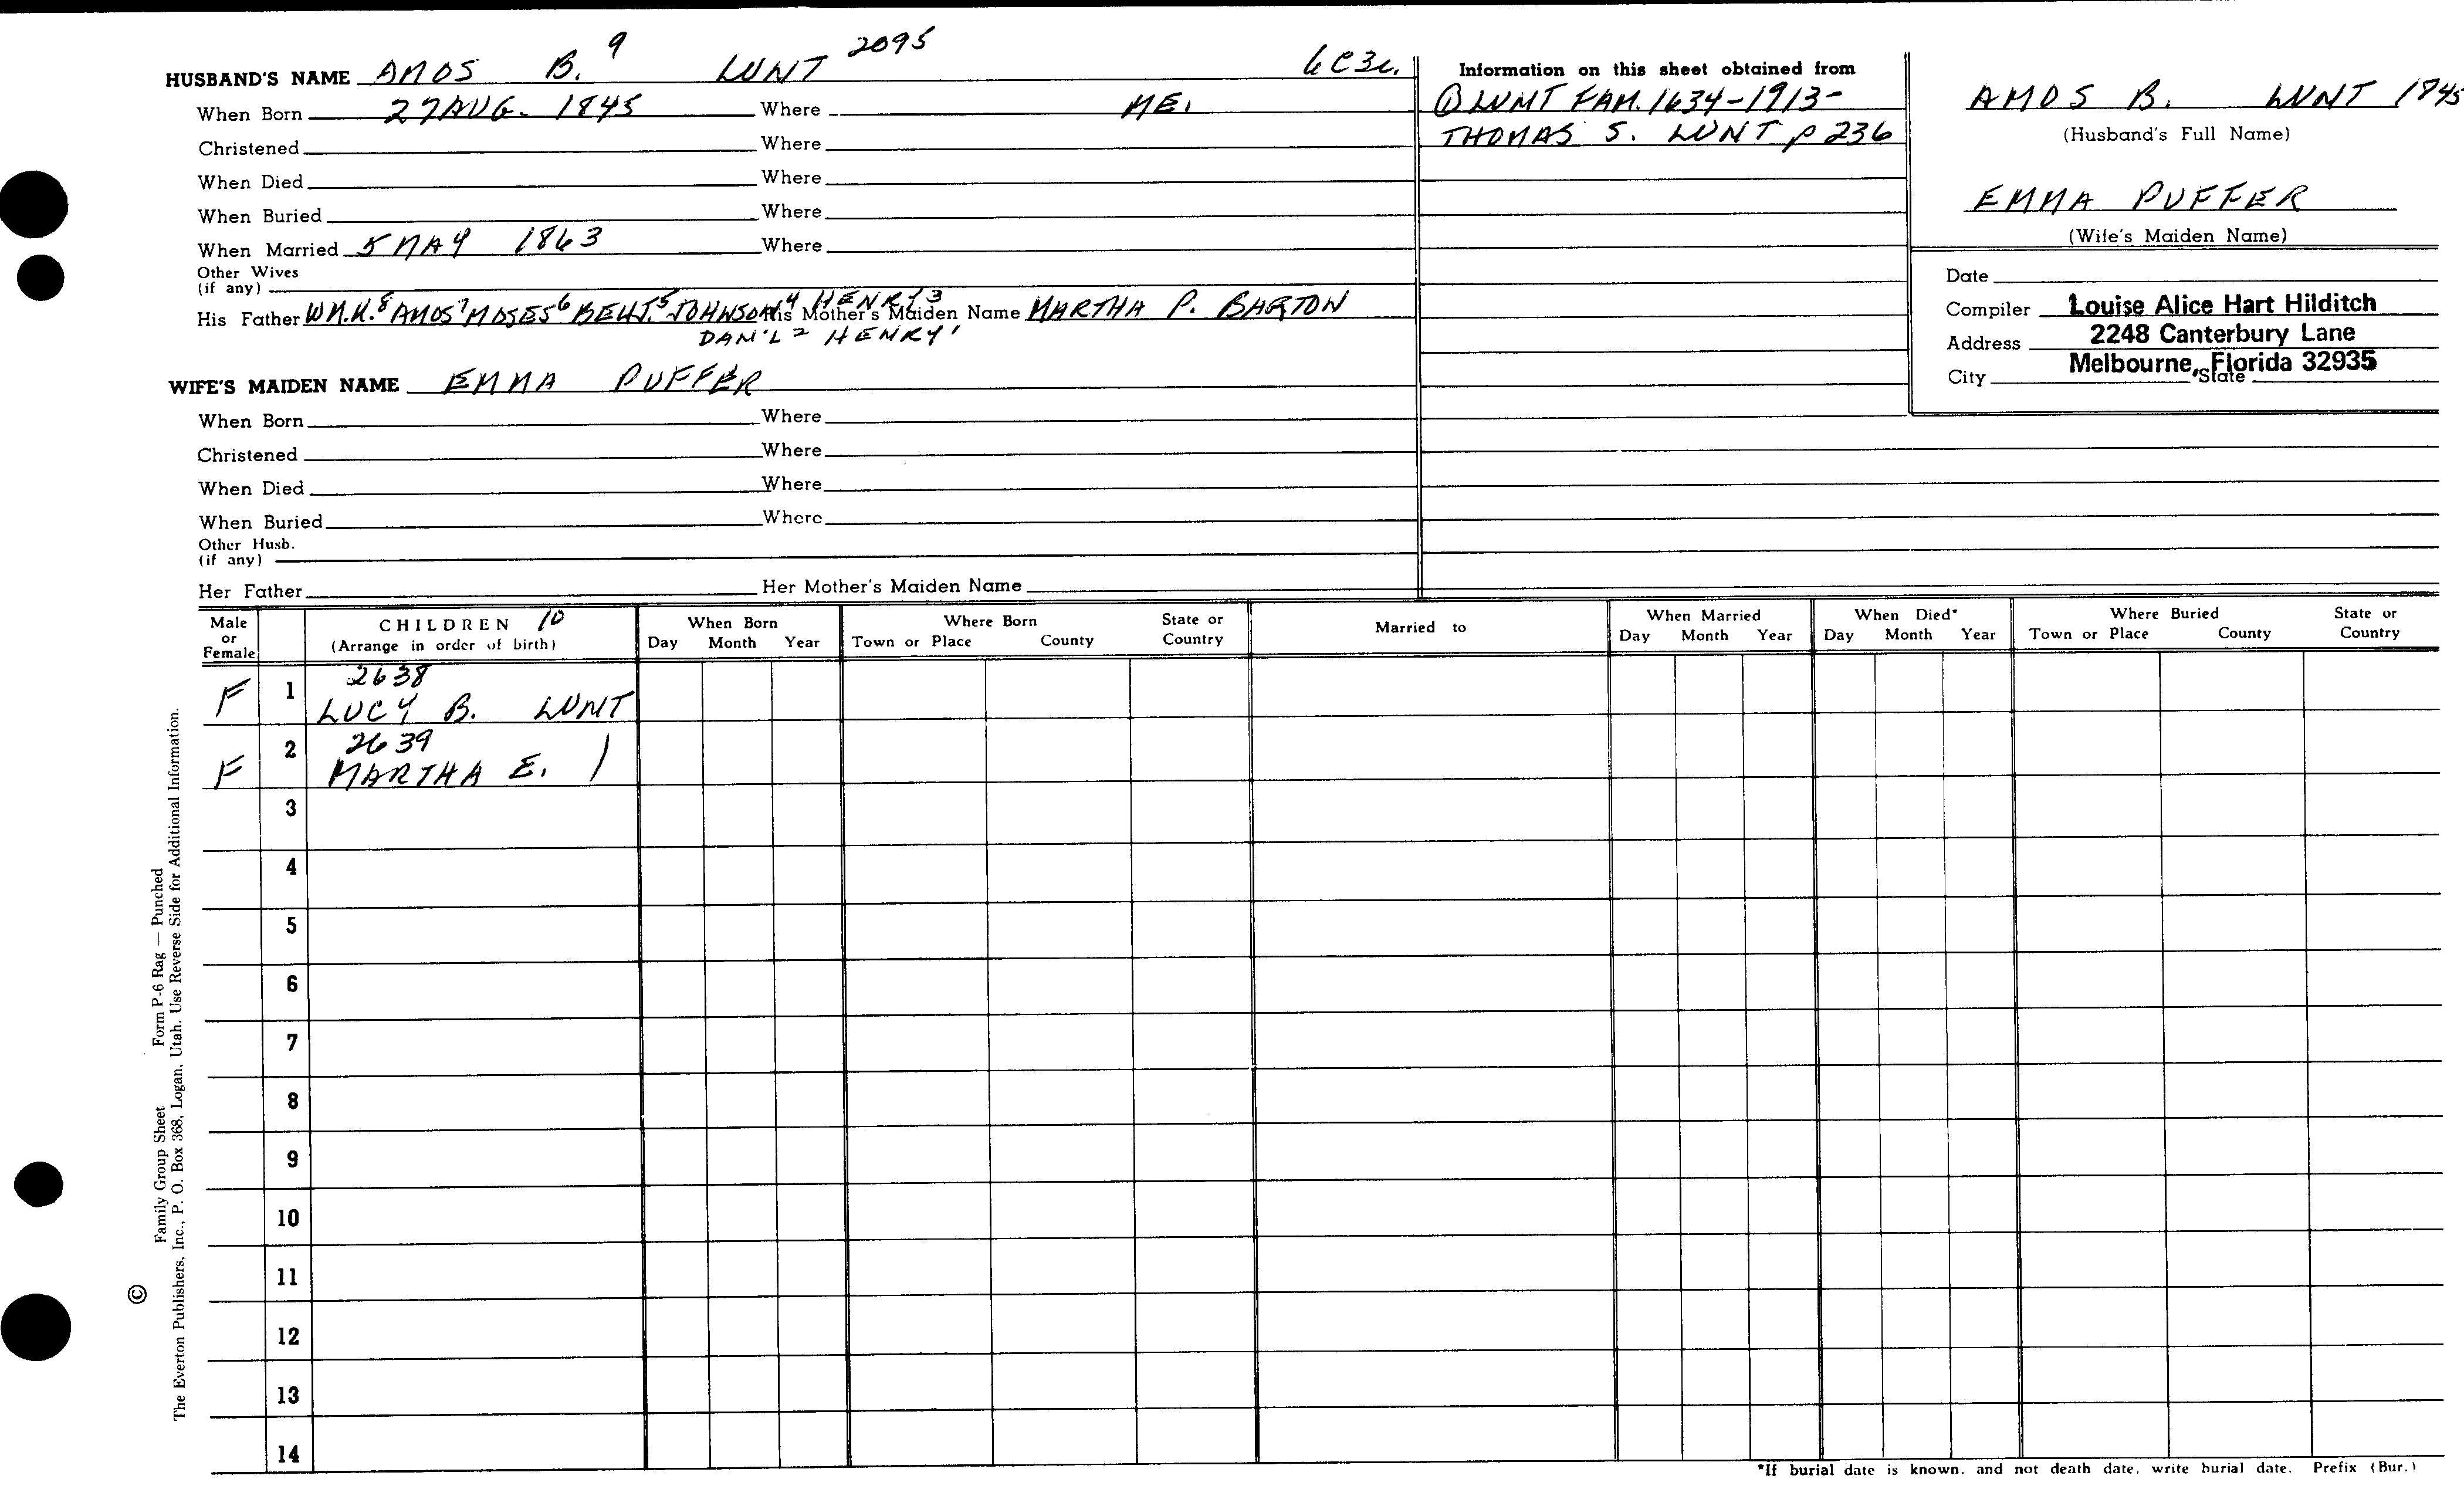 HUSBAND'S NAME AMOS B. 9 LUNT 2095 6C3c.
When Born 27 AUG. 1845 Where ME.
Christened Where
When Died Where
When Buried Where
When Married 5 MAY 1863 Where
Other Wives
(if any)
His Father WM.H.8 AMOS7 MOSES6 BENJ.5 JOHNSON4 HENRY3 His Mother's Maiden Name MARTHA P. BARTON
DAN'L2 HENRY1
WIFE'S MAIDEN NAME EMMA PUFFER
When Born Where
Christened Where
When Died Where
When Buried Where
Other Husb.
(if any)
Her Father Her Mother's Maiden Name
Information on this sheet obtained from
① LUNT FAM. 1634-1913-
THOMAS S. LUNT p 236
AMOS B. LUNT 1845
(Husband's Full Name)
EMMA PUFFER
(Wife's Maiden Name)
Date
Compiler Louise Alice Hart Hilditch
Address 2248 Canterbury Lane
Melbourne, Florida 32935
City State
Male or Female CHILDREN 10 (Arrange in order of birth) When Born Day Month Year Where Born Town or Place County State or Country Married to When Married Day Month Year When Died* Day Month Year Where Buried Town or Place County State or Country
2638
F 1 LUCY B. LUNT
2639
F 2 MARTHA E. |
3
4
5
6
7
8
9
10
11
12
13
14
*If burial date is known, and not death date, write burial date. Prefix (Bur.)
Family Group Sheet Form P-6 Rag — Punched
© The Everton Publishers, Inc., P. O. Box 368, Logan, Utah. Use Reverse Side for Additional Information.